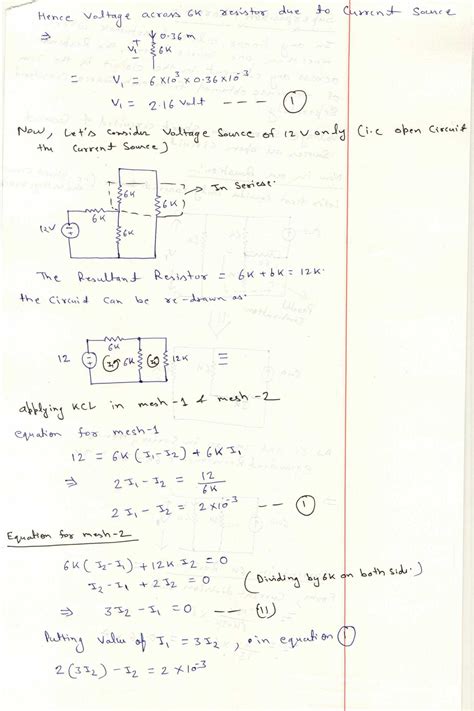 Hence Voltage across 6K resistor due to Current Source
⇒ + V1 - ↓0.36 m 6K
= V1 = 6×10³×0.36×10⁻³
V1 = 2.16 Volt --- ①
Now, Let's consider Voltage Source of 12V only (i.e open Circuit
the Current Source)
6K
6K
→ In Series.
6K
12V
6K
The Resultant Resistor = 6K+6K = 12K.
the Circuid can be re-drawn as.
6K
12 I1 6K I2 12K ≡
applying KCL in mesh-1 & mesh-2
equation for mesh-1
12 = 6K(I1-I2) + 6K I1
⇒ 2I1 - I2 = 12/6K
2I1 - I2 = 2×10⁻³ -- ①
Equation for mesh-2
6K(I2-I1) + 12K I2 = 0
I2 - I1 + 2I2 = 0 (Dividing by 6K on both side.)
⇒ 3I2 - I1 = 0 --- (II)
Putting Value of I1 = 3I2, in equation ①
2(3I2) - I2 = 2×10⁻³